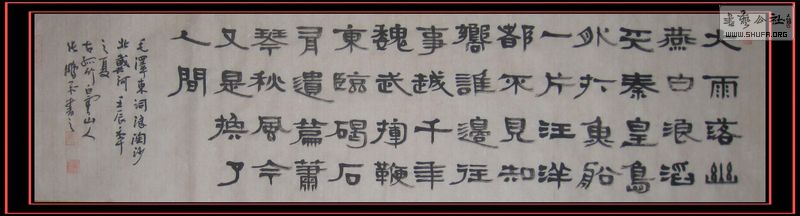 大雨落幽
燕白浪滔
天秦皇島
外打魚船
一片汪洋
都不見知
嚮誰邊往
事越千年
魏武揮鞭
東臨碣石
有遺篇蕭
瑟秋風今
又是換了
人間
毛澤東詞浪淘沙
北戴河 壬辰年
之夏
古孤竹白雲山人
書之
书艺公社
WWW.SHUFA.ORG